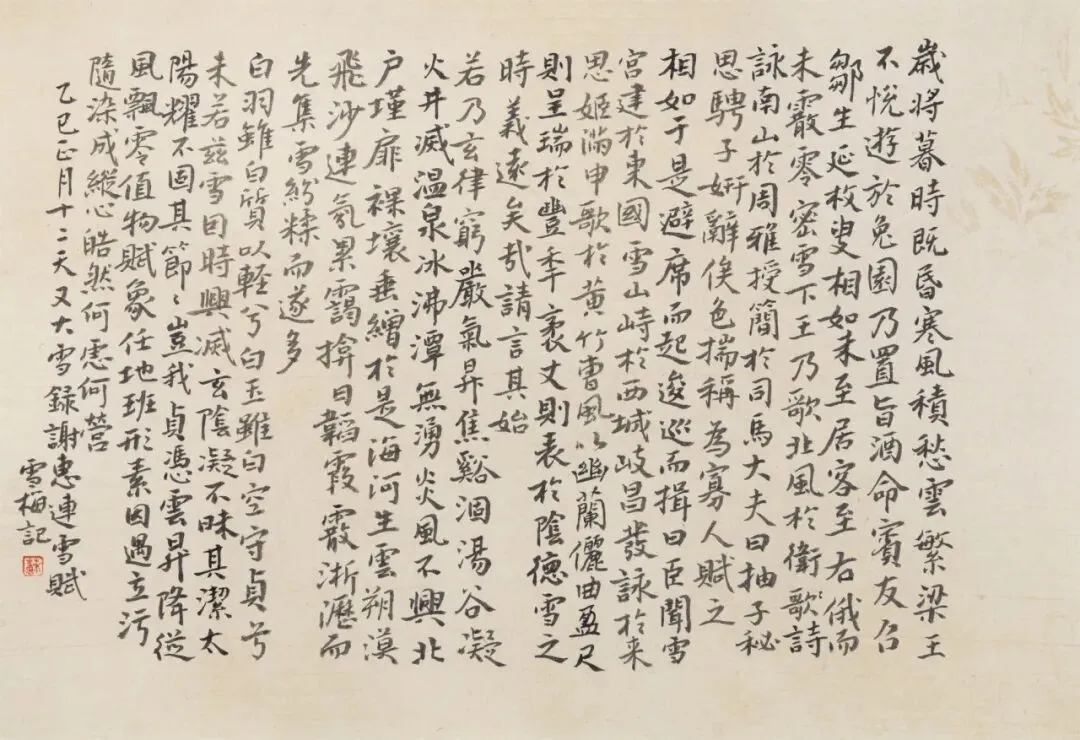 歲將暮時既昏寒風積愁雲繁梁王
不悅遊於兔園乃置旨酒命賓友召
鄒生延枚叟相如末至居客至右俄而
未霰零密雪下王乃歌北風於衛歌詩
詠南山於周雅授簡於司馬大夫曰抽子秘
思騁子妍辭侔色揣稱為寡人賦之
相如于是避席而起逡巡而揖曰臣聞雪
宮建於東國雪山峙於西域岐昌發詠於来
思姬滿申歌於黃竹曹風以幽蘭儷曲盈尺
則呈瑞於豐年袤丈則表於陰德雪之
時義遠矣哉請言其始
若乃玄律窮嚴氣昇焦谿涸湯谷凝
火井滅温泉冰沸潭無湧炎風不興北
户墐扉裸壤垂繒於是海河生雲朔漠
飛沙連氛累靄揜日韜霞霰淅瀝而
先集雪紛糅而遂多
白羽雖白質以輕兮白玉雖白空守貞兮
未若茲雪因時興滅玄陰凝不昧其潔太
陽耀不固其節〻豈我貞憑雲昇降從
風飄零值物賦象任地班形素因遇立污
隨染成縱心皓然何慮何營
乙巳正月十二天又大雪錄謝惠連雪賦
雪梅記